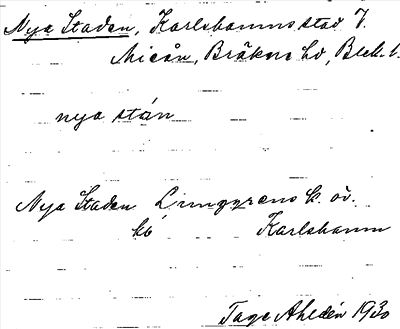 Nya Staden, Karlshamns stad 7.
Mieån, Bräkne hd, Blek. l.
nya stán
Nya Staden Ljunggrens k. öv.
Karlshamn
Tage Ahldén 1930